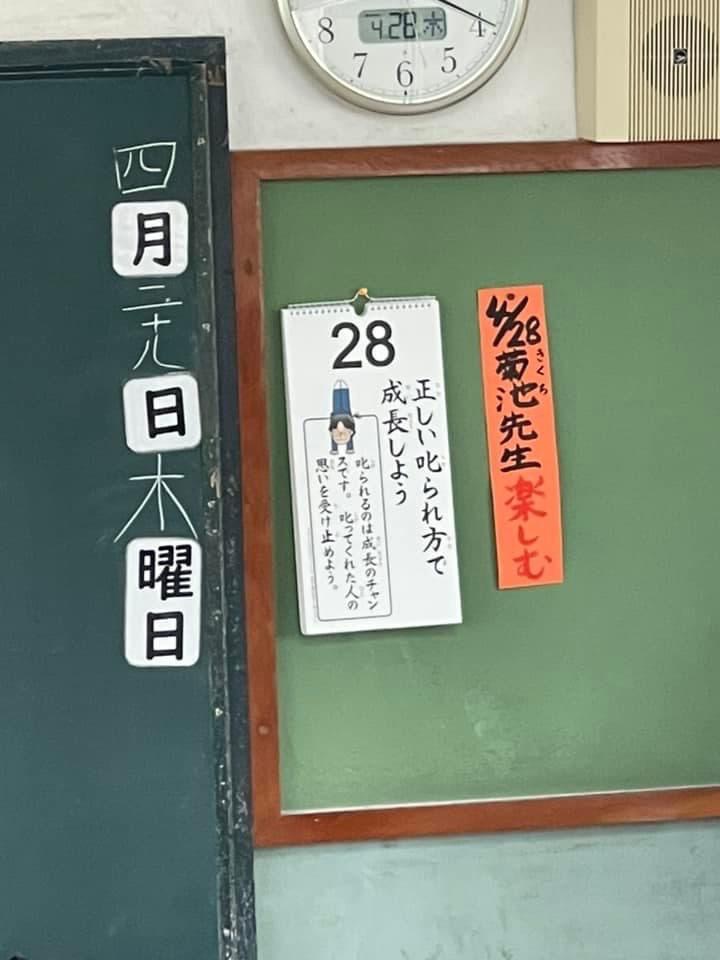 8 7 6 5 4
4.28 木
四月二十八日木曜日
28
正しい叱られ方で
成長しよう
叱られるのは成長のチャン
スです。叱ってくれた人の
思いを受け止めよう。
4/28菊池先生楽しむ
きくち